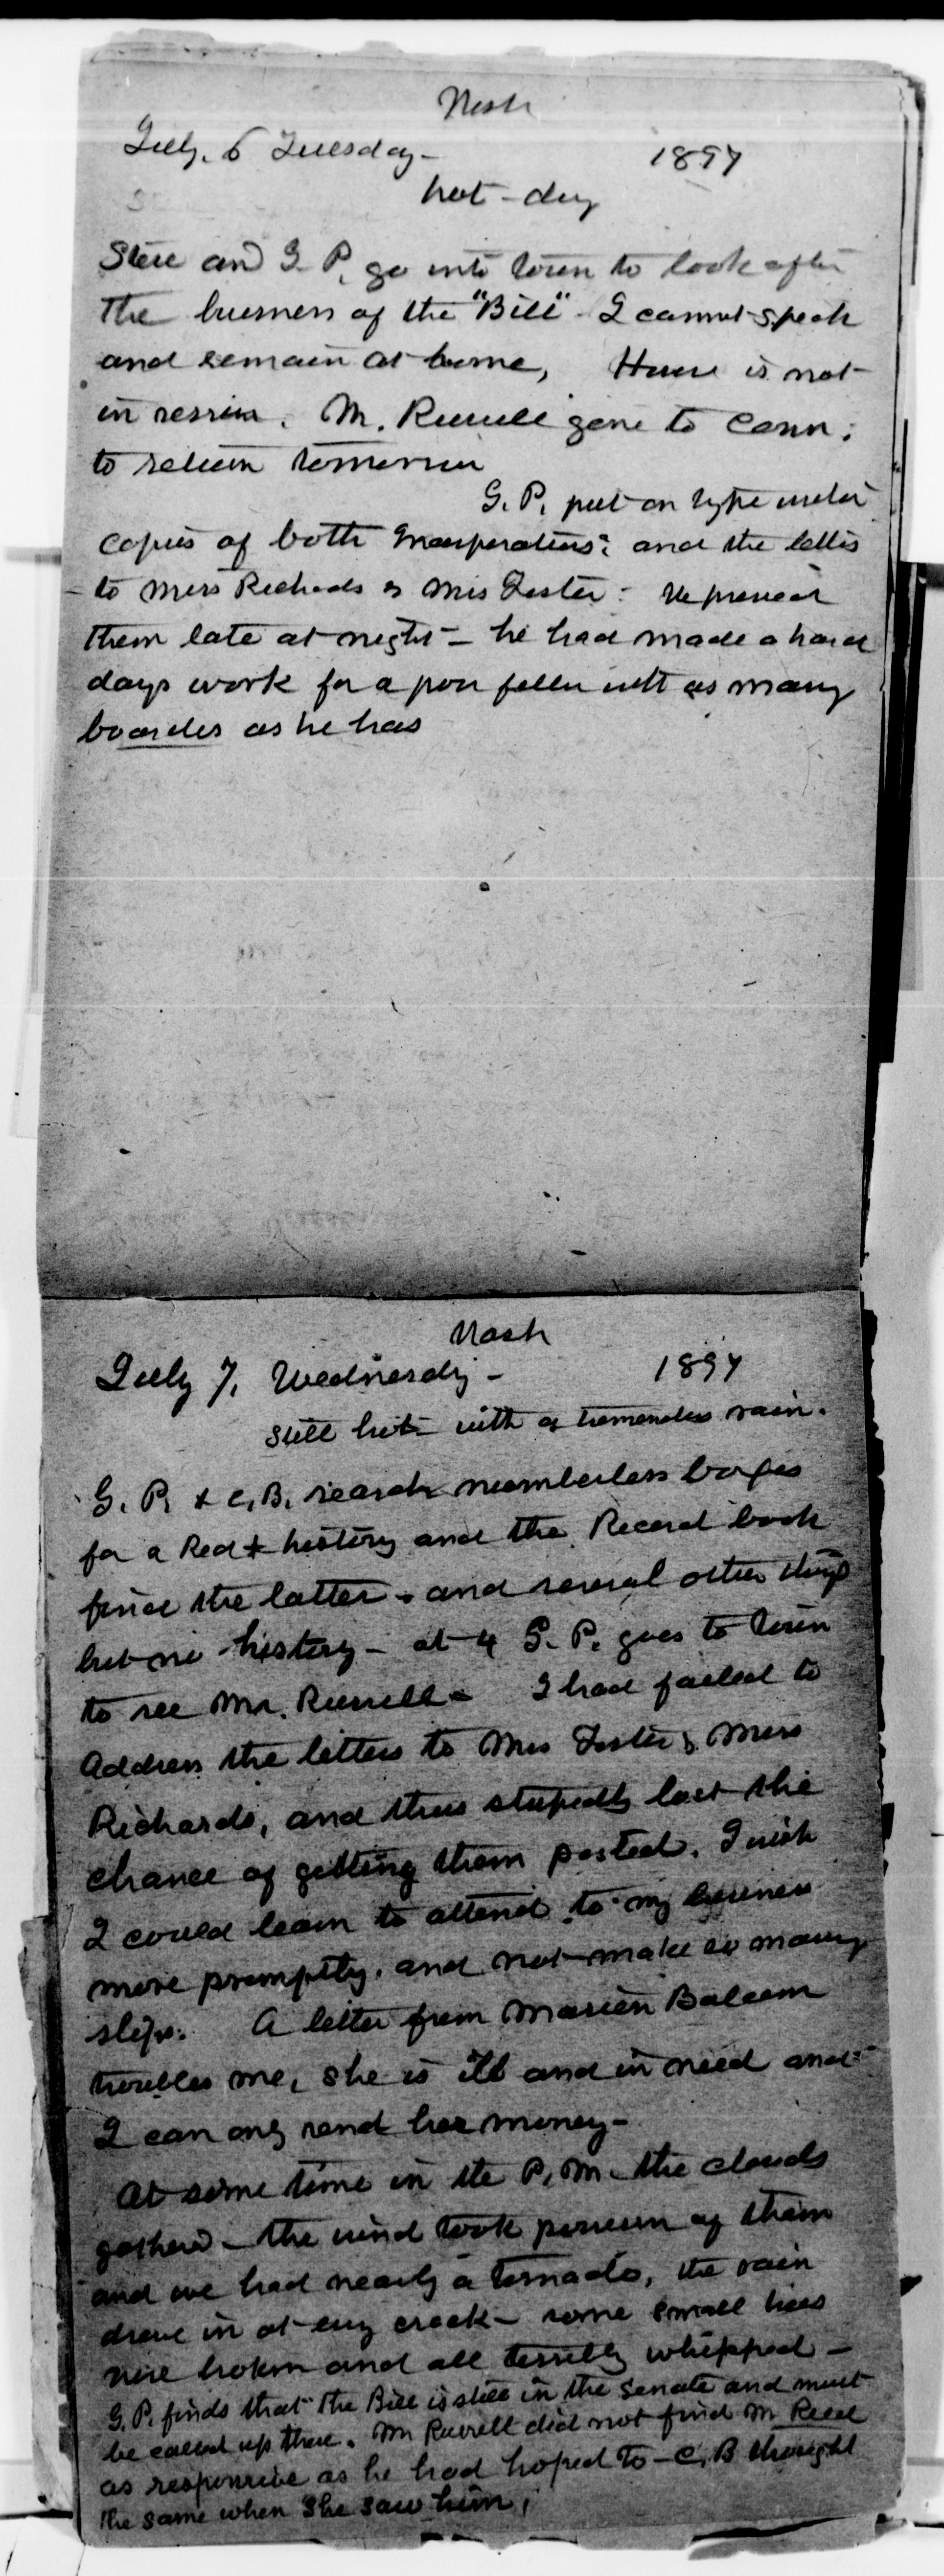 Wash
July. 6 Tuesday - 1897
hot - dry
Steve and G. P. go into town to look after
the business of the "Bill" - I cannot speak
and remain at home, House is not
in session. Mr. Russell gone to Conn.
to return tomorrow
G. P. put on type writer
copies of both Incorporations: and the letters
- to Miss Richards & Mrs Foster -
them late at night - he had made a hard
days work for a poor feller with as many
boarders as he has
Wash
July 7, Wednesday - 1897
Still hot - with a tremendous rain.
G. P. & C. B. search numberless boxes
for a Red + history and the Record book
find the latter - and several other things
but no history - at 4 G. P. goes to town
to see Mr. Russell - I had failed to
Address the letters to Mrs Foster & Miss
Richards, and thus stupidly lost the
chance of getting them posted. I wish
I could learn to attend to my business
more promptly, and not make so many
slips. A letter from Marien Balcom
troubles me, she is ill and in need and
I can only send her money -
At some time in the P. M. the clouds
gathered - the wind took possession of them
and we had nearly a tornado, the rain
drove in at every crack - some small trees
were broken and all terribly whipped -
G. P. finds that the Bill is still in the Senate and must
be called up there. Mr Russell did not find Mr Reed
as responsive as he had hoped to - C. B thought
the same when she saw him,